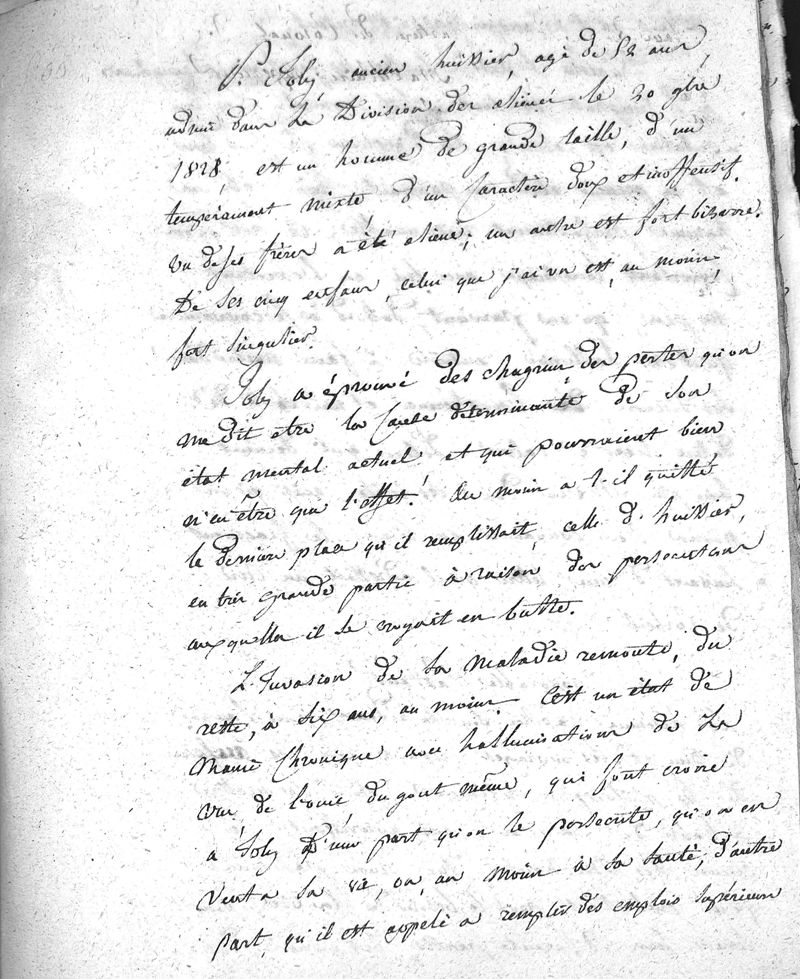 P. Joly, ancien huissier, agé de 52 ans,
admis dans la Division des aliénés le 20 9bre
1828, est un homme de grande taille, d'un
tempérament mixte, d'un caractère doux et inoffensif.
un de ses frères a été aliéné; un autre est fort bizarre.
De ses cinq enfans, celui que j'ai vu est, au moins,
fort singulier.
Joly a éprouvé des chagrins, des pertes qu'on
me dit être la cause déterminante de son
état mental actuel et qui pourraient bien
n'en être que l'effet. Du moins a t-il quitté
la dernière place qu'il remplissait, celle d'huissier,
en très grande partie à raison des persécutions
auxquelles il se croyait en butte.
L'invasion de sa maladie remonte, du
reste, à six ans, au moins. C'est un état de
manie chronique avec hallucinations de la
vue, de l'ouïe, du gout même, qui font croire
à Joly d'une part qu'on le persécute, qu'on en
veut a sa vie, ou, au moins à sa santé; d'autre
part, qu'il est appelé a remplir des emplois supérieurs